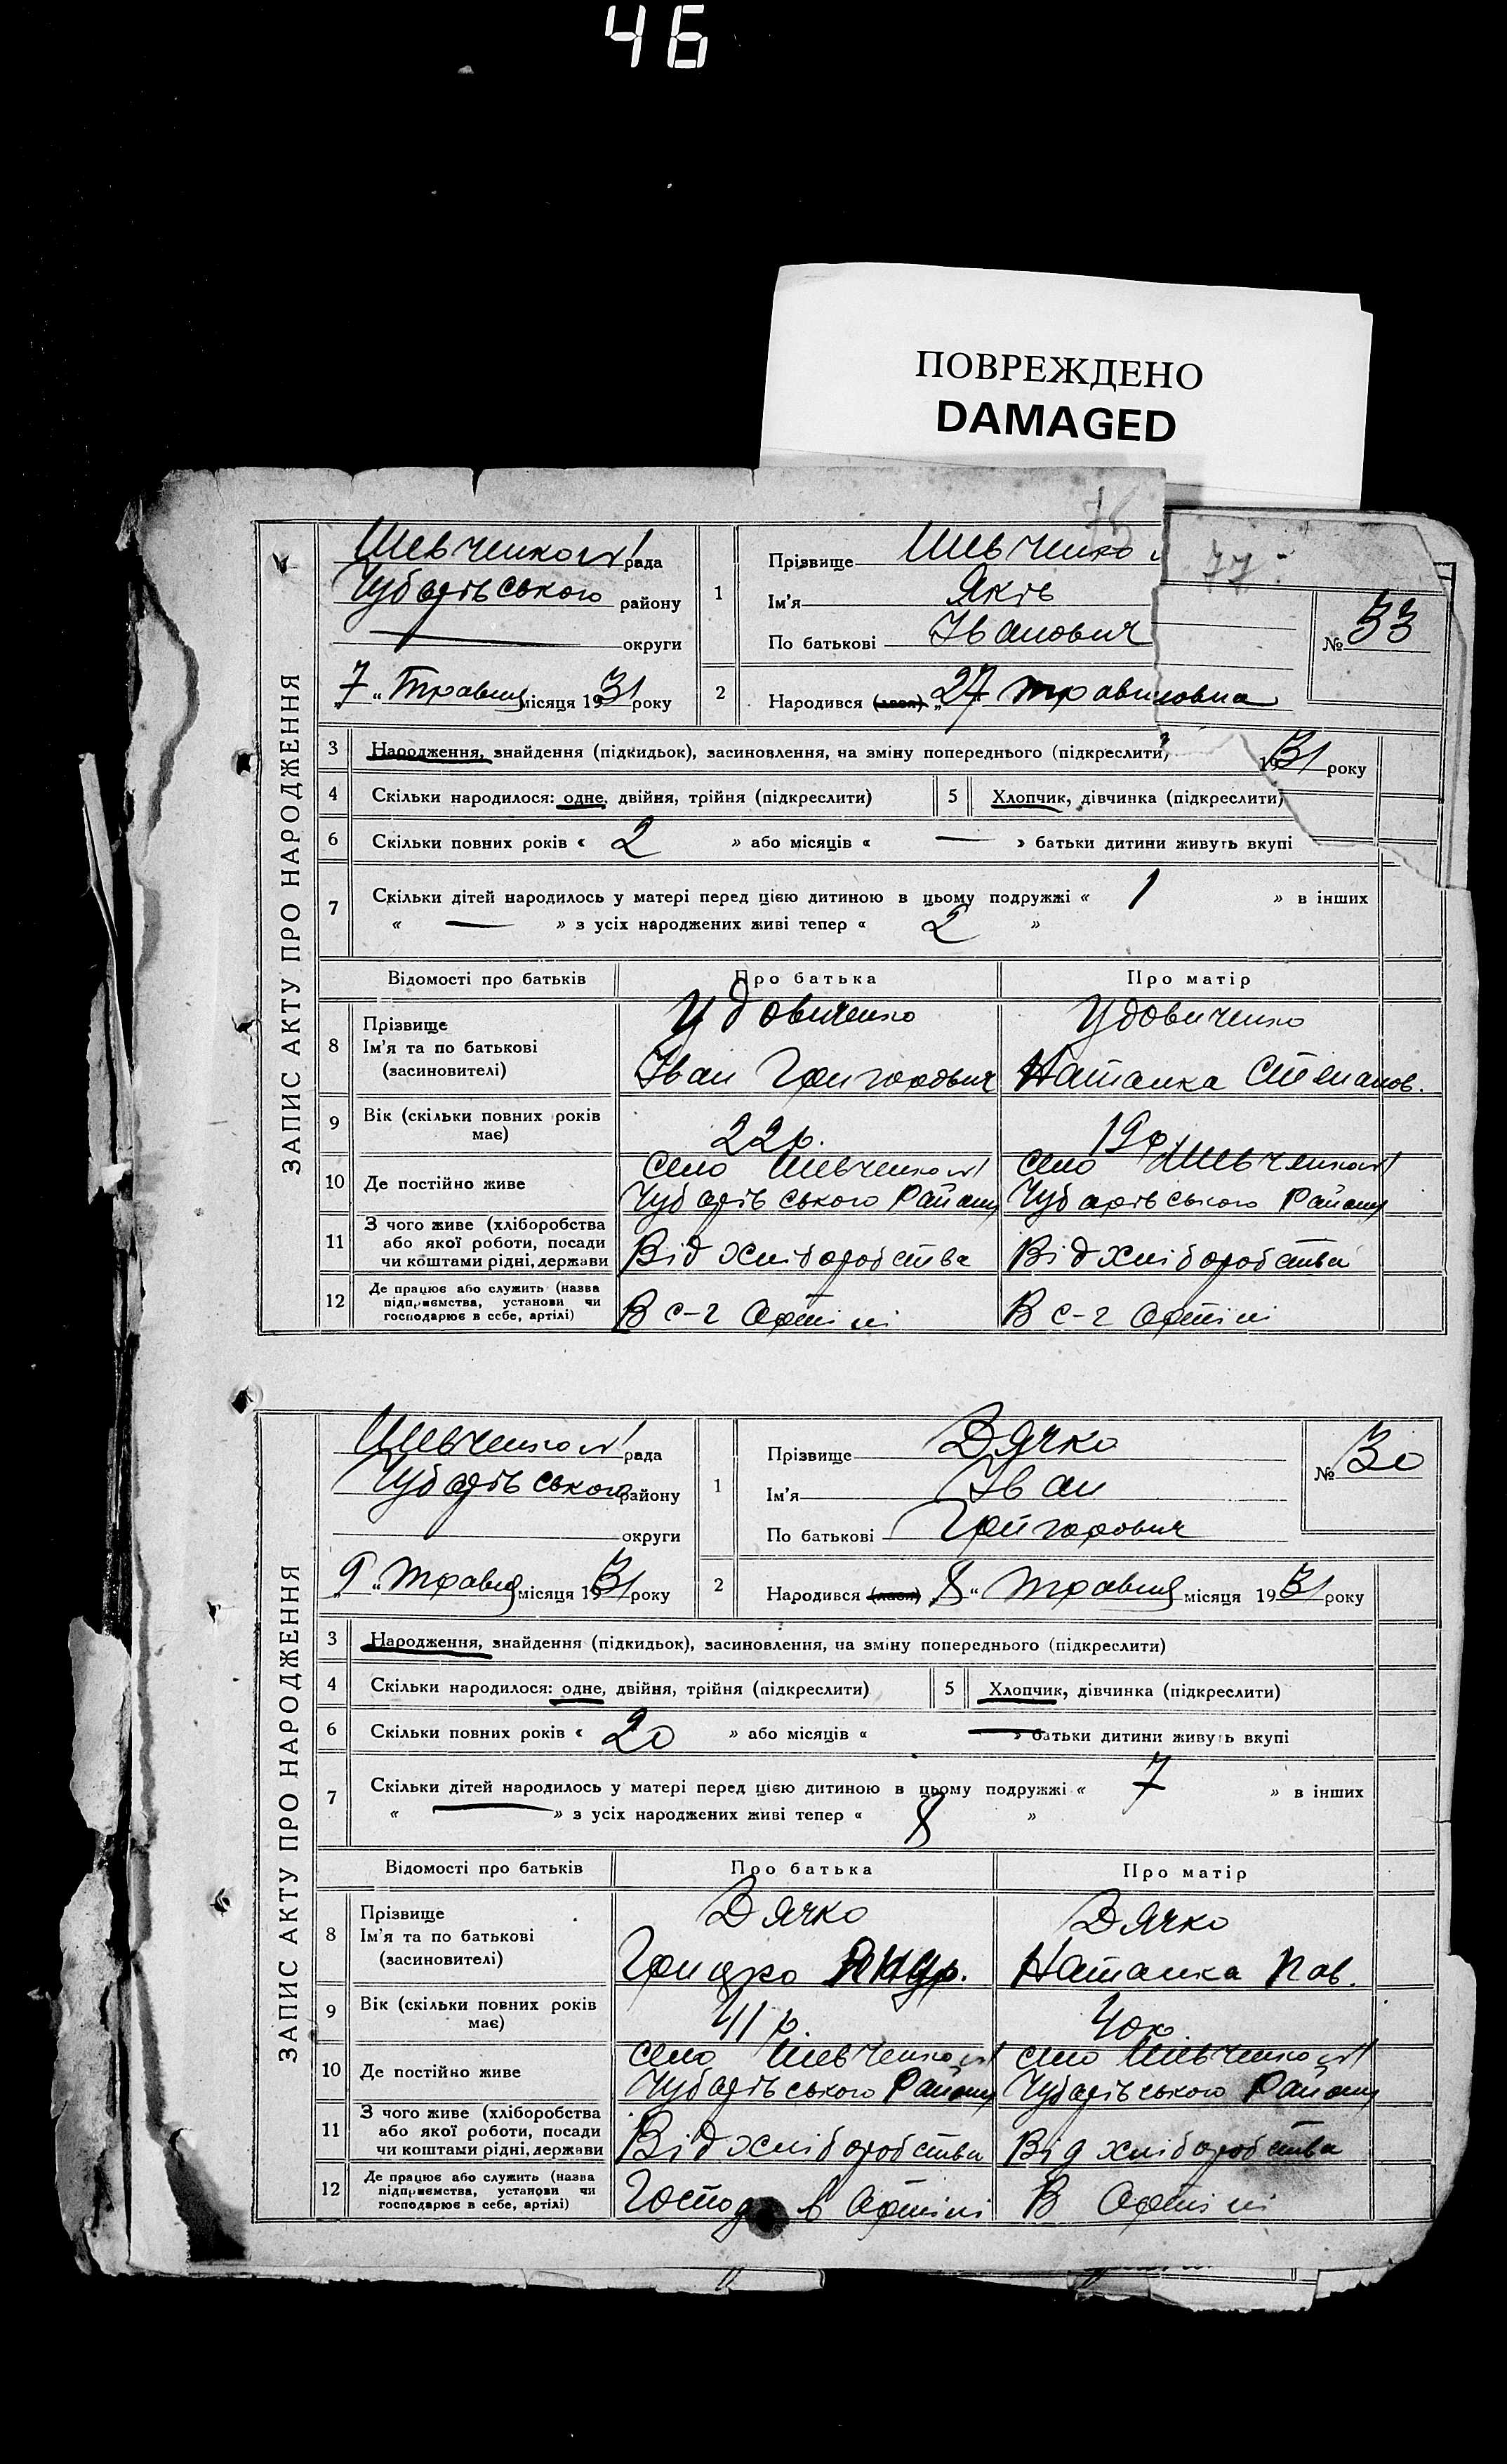 46
ПОВРЕЖДЕНО
DAMAGED
75
77
ЗАПИС АКТУ ПРО НАРОДЖЕННЯ
рада
Чубарівського району
округи
„7“ Травня місяця 1931 року
1
Прізвище Шевченко
Ім'я Яків
По батькові Іванович
№ 33
2
Народився (лася) „27
1931 року
3
Народження, знайдення (підкидьок), засиновлення, на зміну попереднього (підкреслити)
4
Скільки народилося: одне, двійня, трійня (підкреслити)
5
Хлопчик, дівчинка (підкреслити)
6
Скільки повних років « 2 » або місяців « — » батьки дитини живуть вкупі
7
Скільки дітей народилось у матері перед цією дитиною в цьому подружжі « 1 » в інших
« — » з усіх народжених живі тепер « 2 »
Відомості про батьків
Про батька
Про матір
8
Прізвище
Ім'я та по батькові
(засновителі)
Удовиченко
Іван Григорович
Удовиченко
Наталка Степанов.
9
Вік (скільки повних років
має)
22 р.
19 р.
10
Де постійно живе
село
Чубарівського Району
село
Чубарівського Району
11
З чого живе (хліборобства
або якої роботи, посади
чи коштами рідні, держави
Від хліборобства
Від хліборобства
12
Де працює або служить (назва
підприємства, установи чи
господарює в себе, артілі)
В с-г Артілі
В с-г Артілі
ЗАПИС АКТУ ПРО НАРОДЖЕННЯ
рада
Чубарівського району
округи
„9“ Травня місяця 1931 року
1
Прізвище Дячко
Ім'я Іван
По батькові Григорович
№ 30
2
Народився (лася) „8“ Травня місяця 1931 року
3
Народження, знайдення (підкидьок), засиновлення, на зміну попереднього (підкреслити)
4
Скільки народилося: одне, двійня, трійня (підкреслити)
5
Хлопчик, дівчинка (підкреслити)
6
Скільки повних років « 20 » або місяців « — » батьки дитини живуть вкупі
7
Скільки дітей народилось у матері перед цією дитиною в цьому подружжі « 7 » в інших
« — » з усіх народжених живі тепер « 8 »
Відомості про батьків
Про батька
Про матір
8
Прізвище
Ім'я та по батькові
(засиновителі)
Дячко
Грицко
Дячко
Наталка Пав.
9
Вік (скільки повних років
має)
41 р.
40 р.
10
Де постійно живе
село
Чубарівського Району
село
Чубарівського Району
11
З чого живе (хліборобства
або якої роботи, посади
чи коштами рідні, держави
Від хліборобства
Від хліборобства
12
Де працює або служить (назва
підприємства, установи чи
господарює в себе, артілі)
Господ в Артілі
В Артілі